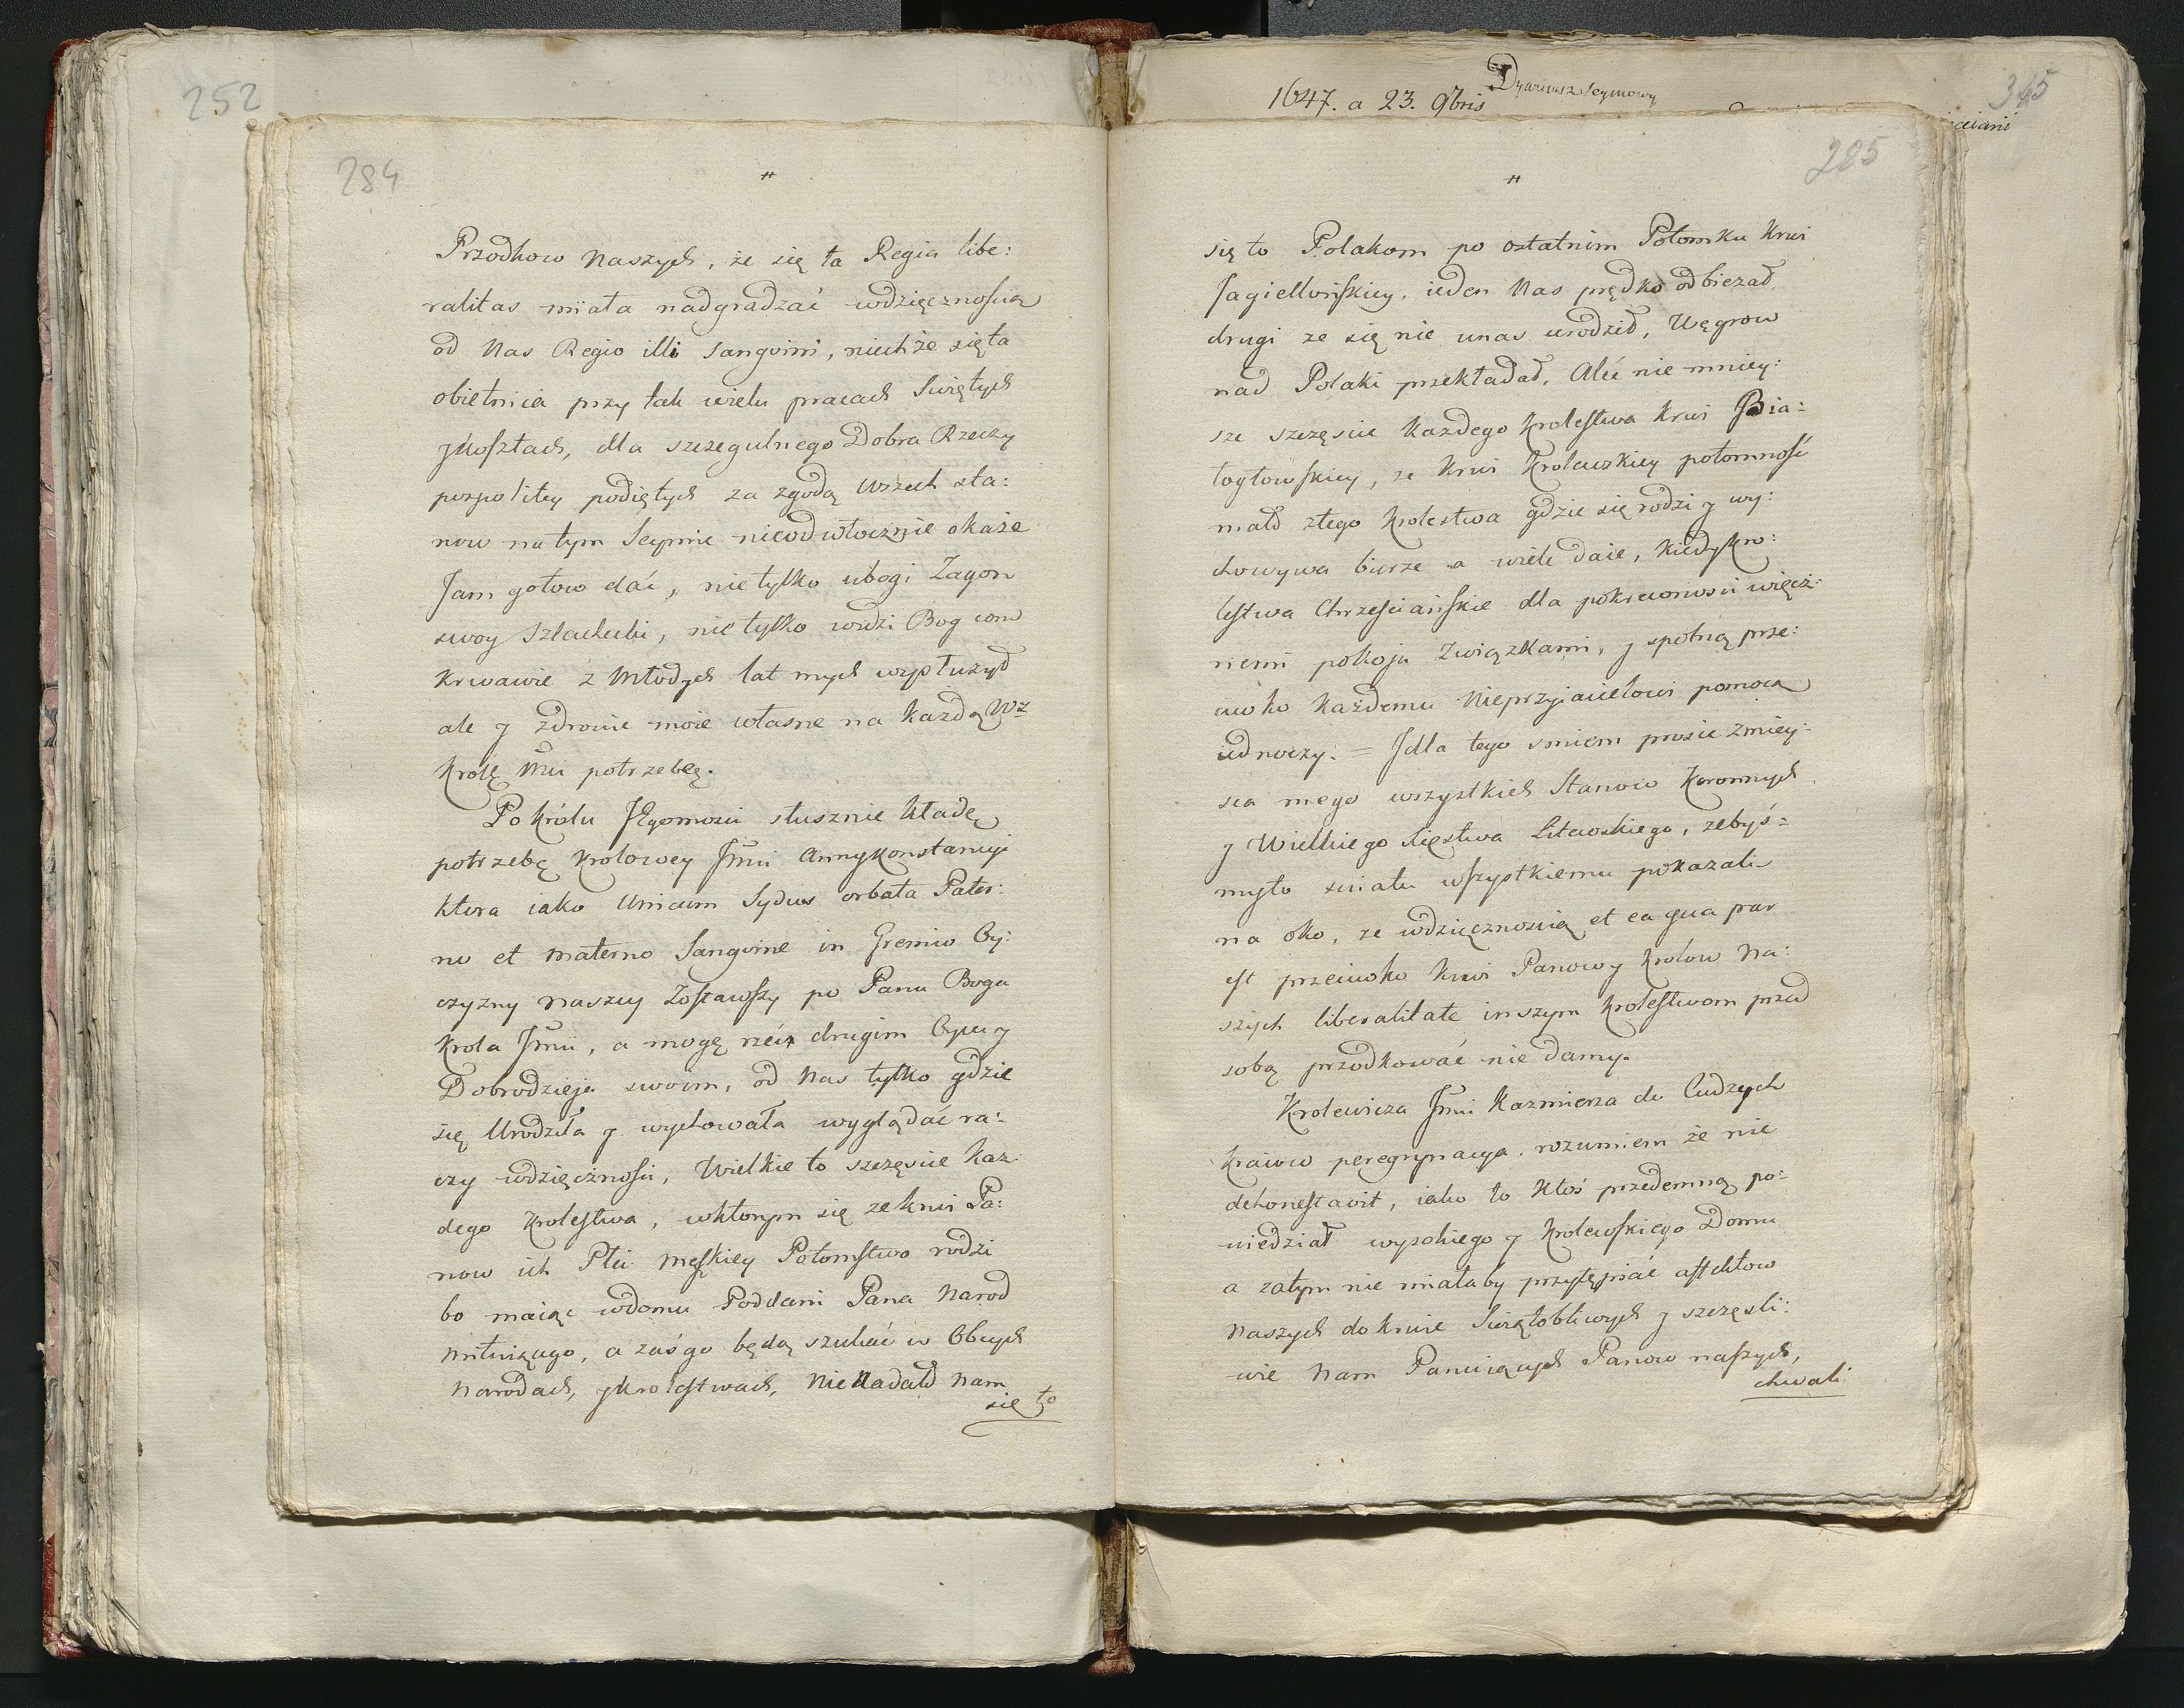 252
284
"
Przodkow Naszych, że się ta Regia libe:
ralitas miała nadgradzać wdzięcznością
od Nas Regio illi Sangvini, niechże się ta
obietnica przy tak wielu pracach Świętych
y kosztach, dla szczegulnego Dobra Rzeczy
pospolitey podiętych za zgodą wszech sta:
now na tym Seymie nieodwłocznie okaże
Jam gotow dać, nie tylko ubogi Zagon
swoy Szlachecki, nie tylko widzi Bog com
krwawie z Młodych lat mych wysłużył
ale y zdrowie moie własne na każdą
Krolę Mci potrzebę.
Po Królu JEgomości słusznie kładę
potrzebę Krolowey Jmci Anny Konstancyi
ktora iako Unicum Sydus orbata Pater:
no et materno Sangvine in Gremio Oy:
czyzny naszey Zostawszy po Panu Bogu
Krola Jmci, a mogę rzéc drugim Oycu y
Dobrodzieja swoim, od Nas tylko gdzie
się Urodziła y wychowała wyglądać ra:
czy wdzięczności, Wielkie to szczęscie Kaz:
dego Krolestwa, wktorym się ze krwi Pa:
now ich Płci Męskiey Potomstwo rodzi
bo maiąc wdomu Poddani Pana Narod
miłuiącego, a zaś go będą szukać w Obcych
Narodach, y krolestwach, Nie nadałd nam
się to
1647. a 23. 9bris
Dyariusz Seymowy
345
285
"
się to Polakom po ostatnim Potomku krwi
Jagiellońskiey, ieden Nas prędko odbiezał
drugi ze się nie unas urodził, Węgrow
nad Polaki przekładał. Aleć nie mniey:
sze szczęscie każdego Krolestwa krwi Bia:
łogłowskiey, ze krwi Krolewskiey potomność
małd ztego Krolestwa gdzie się rodzi y wy:
chowywa bierze a wiele daie, kiedy Kro:
lestwa Chrzesciańskie dla pokrewnosci więź:
niemi pokoju Związkami, y społną prze:
ciwko Każdemu Nieprzyjacielowi pomocą
iednoczy. = J dla tego smiem prosic zmiey:
sca mego wszystkich Stanow Koronnych
y Wielkiego Xięstwa Litewskiego, zebyś=
my to swiatu wszystkiemu pokazali
na oko, ze wdzięcznoscią et ea qua par
est przeciwko krwi Panow y Krolow Na:
szych liberalitate inszym Krolestwom przed
sobą przodkować nie damy.
Krolewicza Jmci Kazmierza do Cudzych
Kraiow peregrynacya, rozumiem że nie
dehonestavit, iako to Ktoś przedemną po:
wiedział wysokiego y Krolewskiego Domu
a zatym nie miałaby przytępiać affektow
Naszych do krwie Swiętobliwych y szczęsli:
wie Nam Panuiących Panow naszych,
chwali